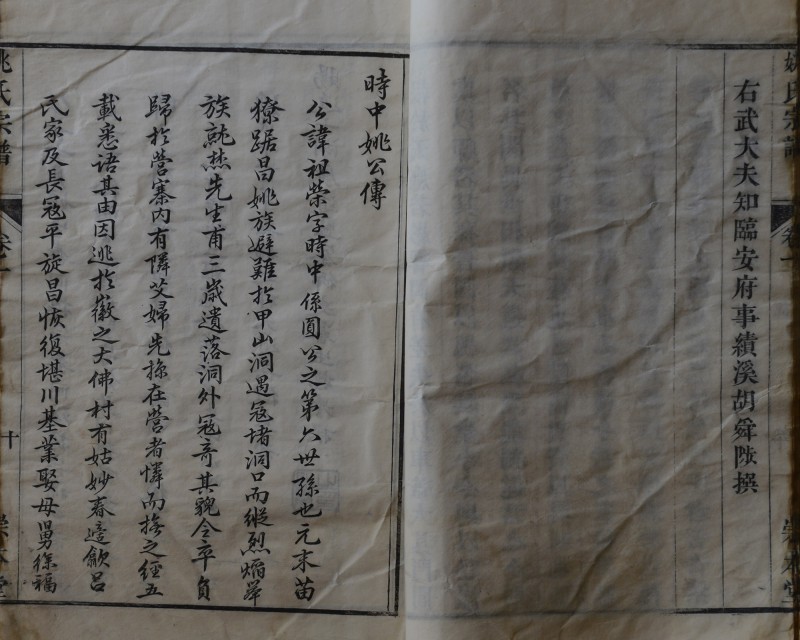 姚氏宗譜 卷一 崇本堂
右武大夫知臨安府事績溪胡舜陟撰
時中姚公傳
公諱祖榮字時中係圓公之第六世孫也元末苗
獠踞昌姚族避難於甲山洞遇寇堵洞口而縱烈焰舉
族就先生甫三歲遺落洞外寇奇其貌令卒負
歸於營寨內有隣艾婦先掠在營者憐而撫之經五
載悉語其由因逃於徽之大佛村有姑妙春適歙呂
民家及長寇平旋昌恢復堪川基業娶母舅徐福
姚氏宗譜 卷一 十 崇本堂